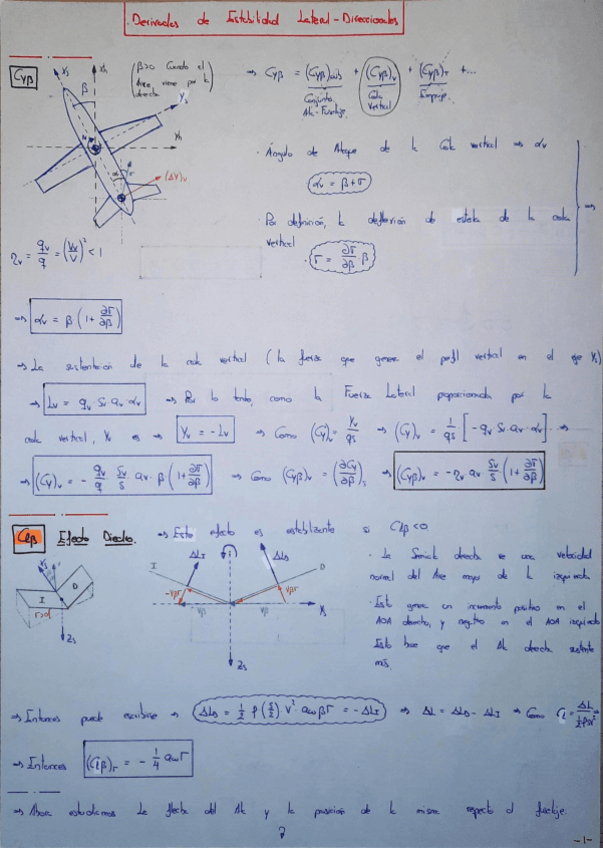 Derivadas de Estabilidad Lateral-Direccionales
Cyβ
(β>0 Cuando el Aire viene por la derecha)
⇒ Cyβ = (Cyβ)wb + (Cyβ)v + (Cyβ)T + ...
Conjunto Ala-Fuselaje
Cola Vertical
Empuje
· Ángulo de Ataque de la Cola vertical ⇒ αv
αv = β+σ
· Por definición, la deflexión de estela de la cola
vertical
σ = ∂σ/∂β β
(ΔV)v
ηv = qv/q = (Vv/V)² < 1
⇒ αv = β (1 + ∂σ/∂β)
⇒ La sustentación de la cola vertical (la fuerza que genera el perfil vertical en el eje Ys)
⇒ Lv = qv · Sv · av · αv ⇒ Por lo tanto, como la Fuerza Lateral proporcionada por la
cola vertical, Yv es ⇒ Yv = -Lv ⇒ Como (Cy)v = Yv/qS ⇒ (Cy)v = 1/qS [-qv · Sv · av · αv] ⇒
⇒ (Cy)v = - qv/q · Sv/S · av · β (1 + ∂σ/∂β) ⇒ Como (Cyβ)v = (∂Cy/∂β)s ⇒ (Cyβ)v = -ηv av Sv/S (1 + ∂σ/∂β)
Clβ Efecto Diedro. ⇒ Este efecto es estabilizante si Clβ<0
· La Semiala derecha ve una velocidad
normal del Aire mayor de la izquierda
· Esto genera un incremento positivo en el
AOA derecho, y negativo en el AOA izquierdo
Esto hace que el Ala derecha sustente
más.
I
D
Zs
ΔLI
ΔLD
I
D
-VβΓ
VβΓ
Vβ
Vβ
Ys
Zs
⇒ Entonces puede escribirse ⇒ ΔLD = 1/2 ρ (S/2) V² · aw βΓ = -ΔLI ⇒ ΔL = ΔLD - ΔLI ⇒ Como
⇒ Entonces (Clβ)Γ = - 1/4 awΓ
⇒ Ahora estudiamos la flecha del Ala y la posición de la misma respecto al fuselaje.
-1-